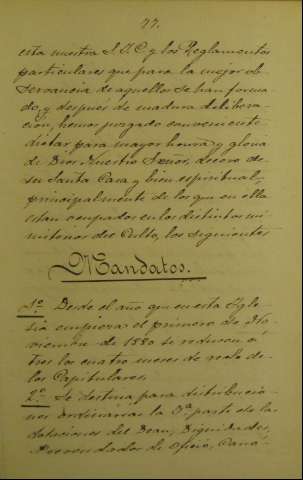 77.
esta nuestra S. I. C. y los Reglamentos
particulares que para la mejor ob-
servancia de aquellos se han forma-
do, y después de madura delibera-
ción, hemos juzgado conveniente
dictar para mayor honra y gloria
de Dios Nuestro Señor, decoro de
su Santa Casa y bien espiritual
principalmente de los que en ella
estan ocupados en los distintos mi-
nisterios del Culto, los siguientes
Mandatos.
1º. Desde el año que en esta Igle-
sia empieza el primero de No-
viembre de 1880 se reducen a
tres los cuatro meses de recle de
los Capitulares.
2º. Se destina para distribucio-
nes ordinarias la 5ª parte de la
dotaciones del Dean, Dignidades,
Prevendados de Oficio, Canó-